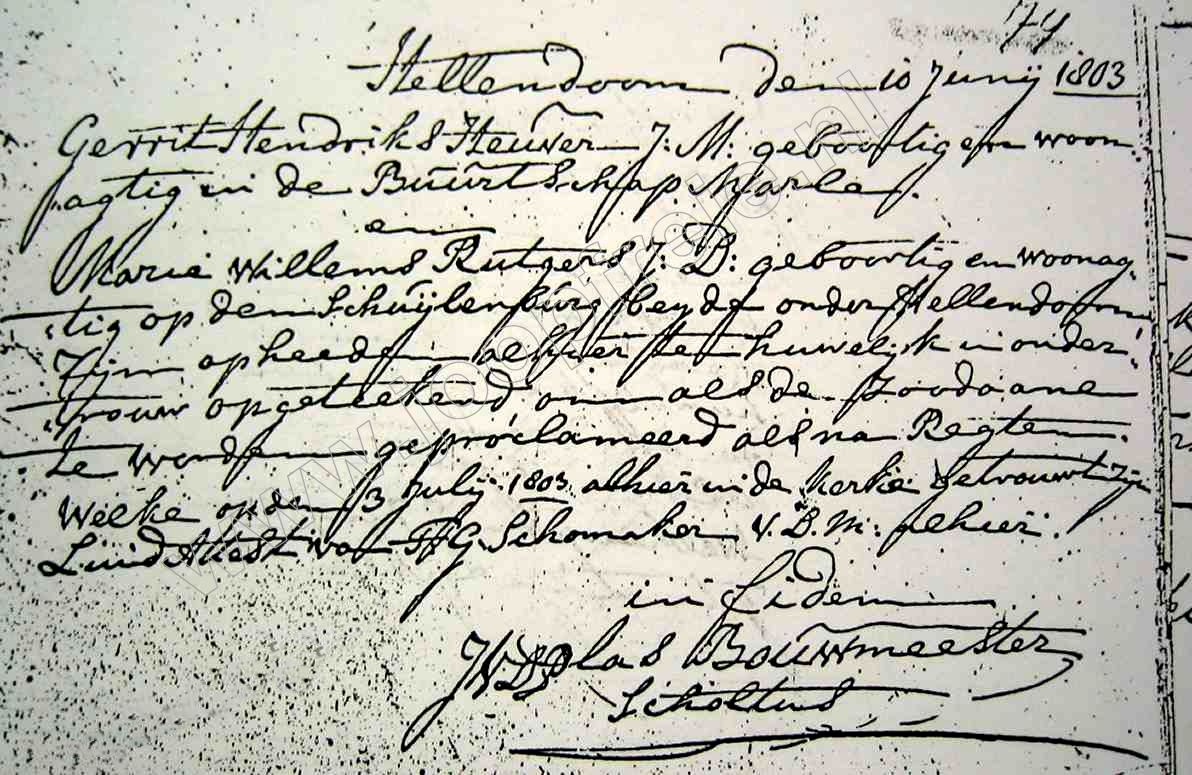 74
Hellendoorn den 10 Junij 1803
Gerrit Hendriks Heuver J: M: geboortig en woon-
agtig in de Buurtschap Marle.
en
Marie Willems Rutgers J: D: geboortig en woonag-
tig op den Schuijlenburg beyde onder Hellendoorn
Zijn op heeden alhier ten huwelijk in onder-
trouw opgeteekend om als de zoodaane
te worden geproclameerd als na Regten.
Welke op den 3 Julij 1803 alhier in de Kerke getrouwt zijn
Luid Attest van G Schomaker V. D. M: alhier.
in fidem
Plas Bouwmeester
Scholtus